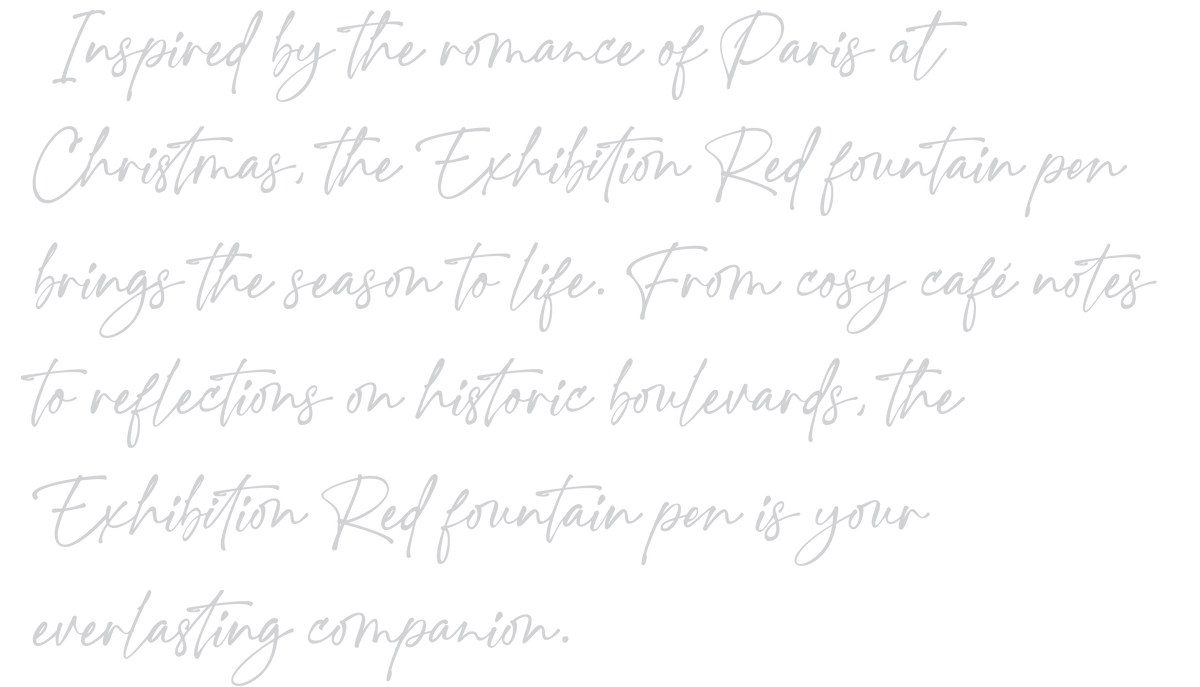 Inspired by the romance of Paris at
Christmas, the Exhibition Red fountain pen
brings the season to life. From cosy café notes
to reflections on historic boulevards, the
Exhibition Red fountain pen is your
everlasting companion.